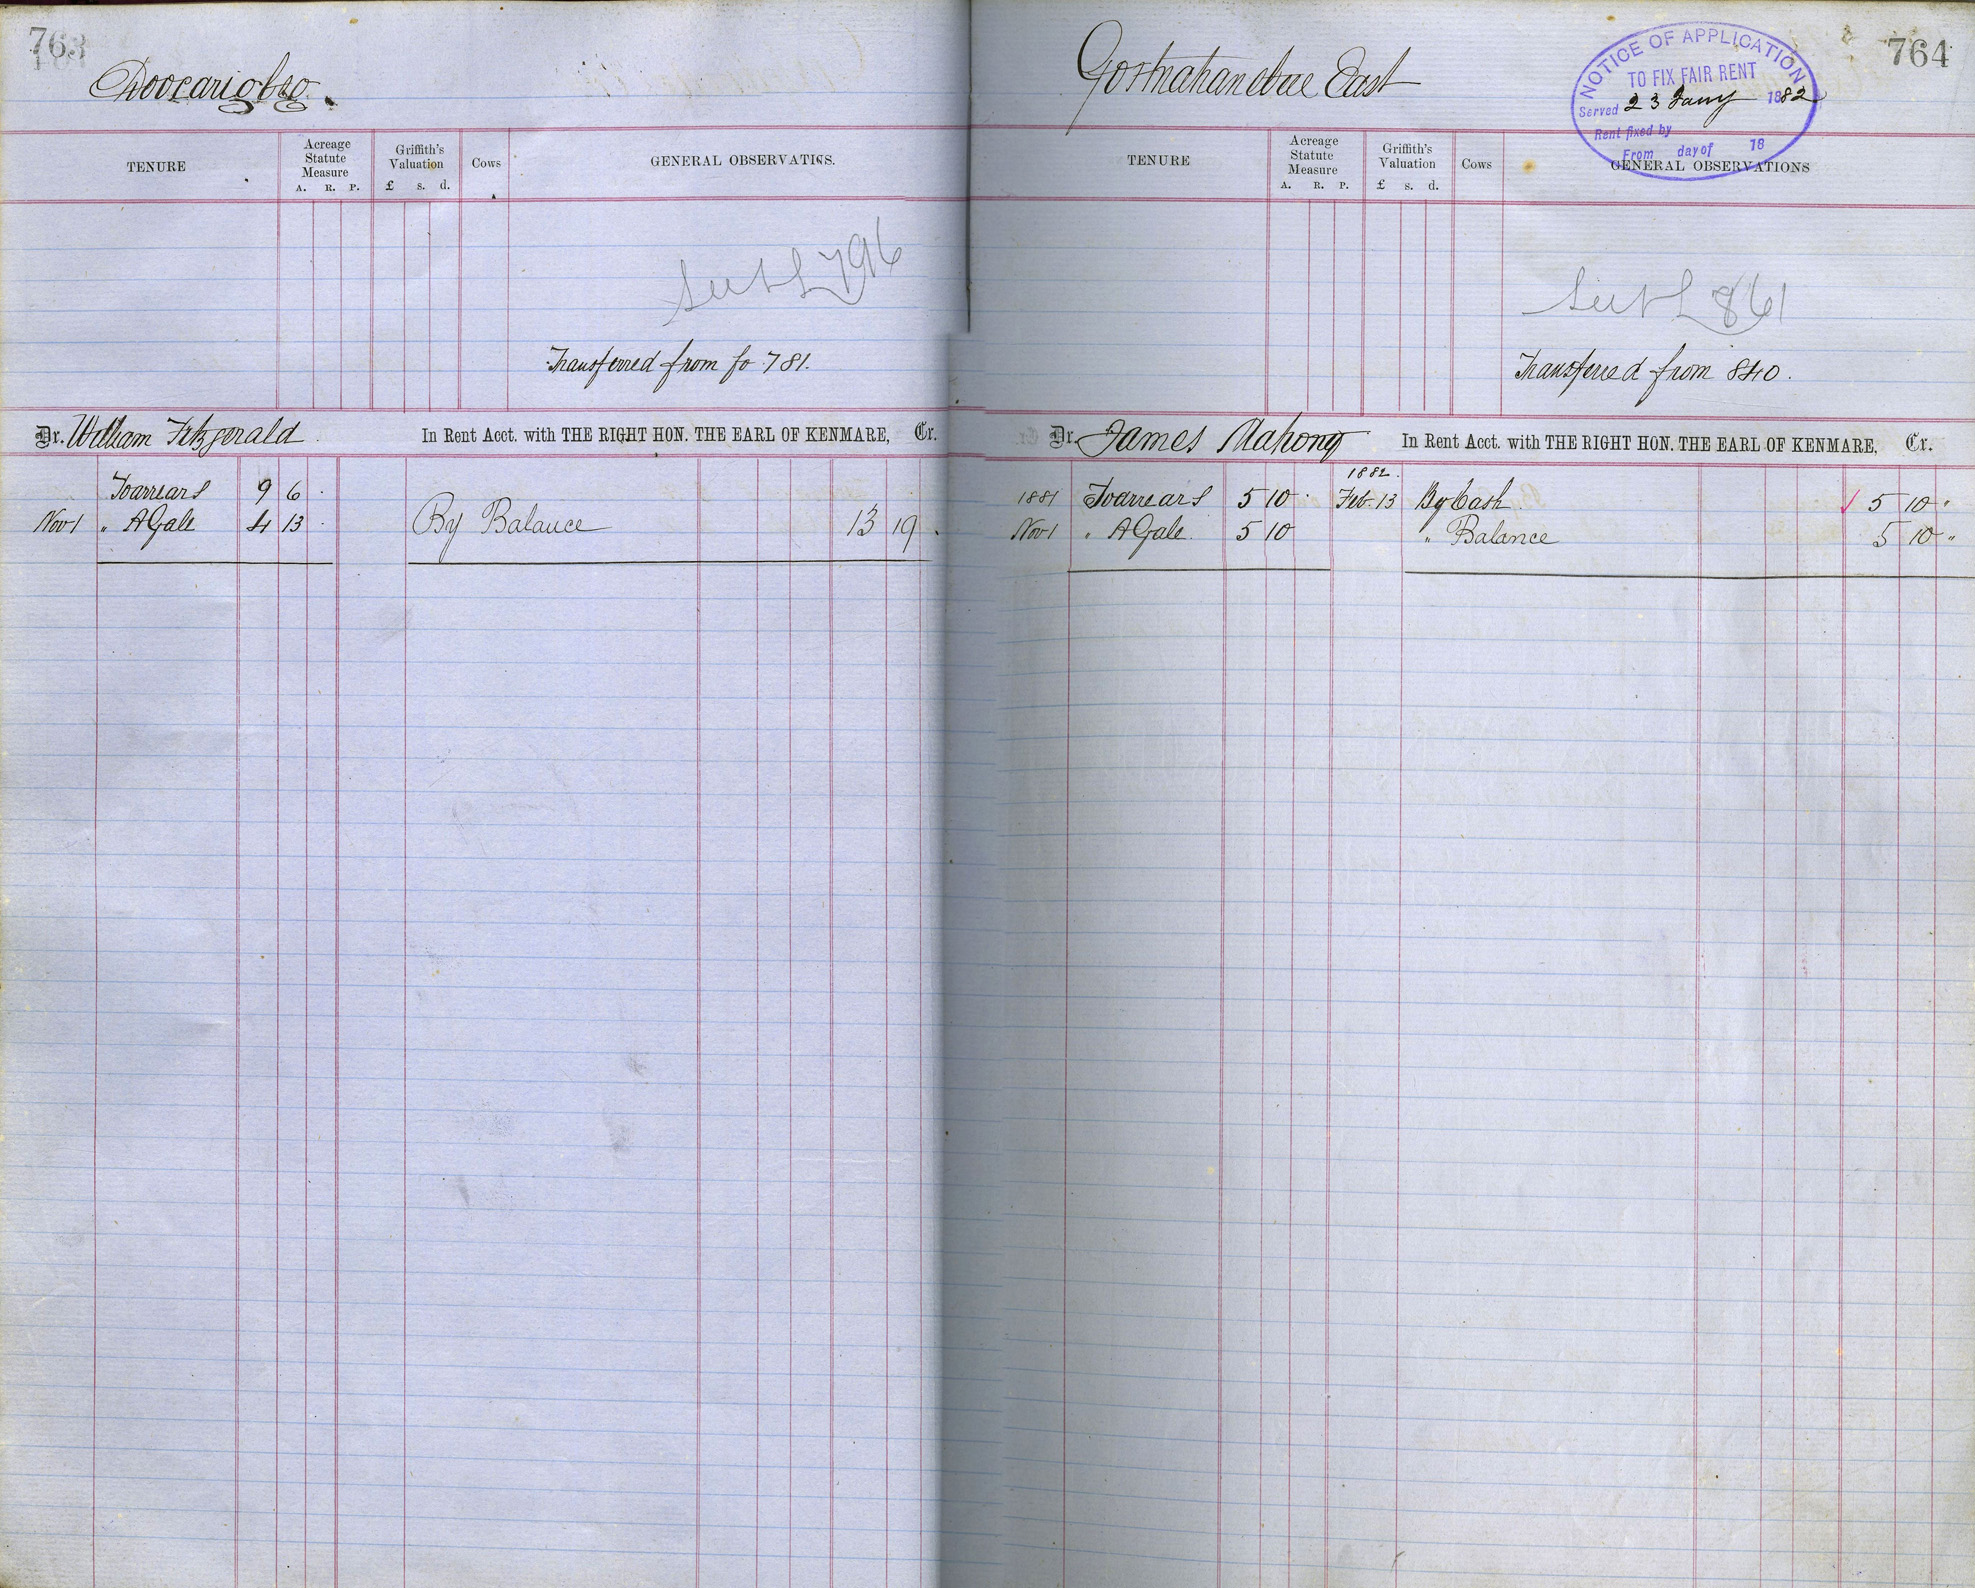 763
Doocarigbeg
TENURE
Acreage Statute Measure
A. R. P.
Griffith's Valuation
£ s. d.
Cows
GENERAL OBSERVATIONS.
796
Transferred from fo 781.
Dr. William Fitzgerald In Rent Acct. with THE RIGHT HON. THE EARL OF KENMARE, Cr.
To arrears 9 6
Nov 1 " A Gale 4 13
By Balance 13 19
764
East
NOTICE OF APPLICATION
TO FIX FAIR RENT
Served 23 Jany 1882
Rent fixed by
From day of 18
TENURE
Acreage Statute Measure
A. R. P.
Griffith's Valuation
£ s. d.
Cows
GENERAL OBSERVATIONS
861
Transferred from 840.
Dr. James Mahony In Rent Acct. with THE RIGHT HON. THE EARL OF KENMARE, Cr.
1882.
1881 To arrears 5 10 Feb. 13 By Cash 5 10 "
Nov 1 " A Gale. 5 10 " Balance 5 10 "